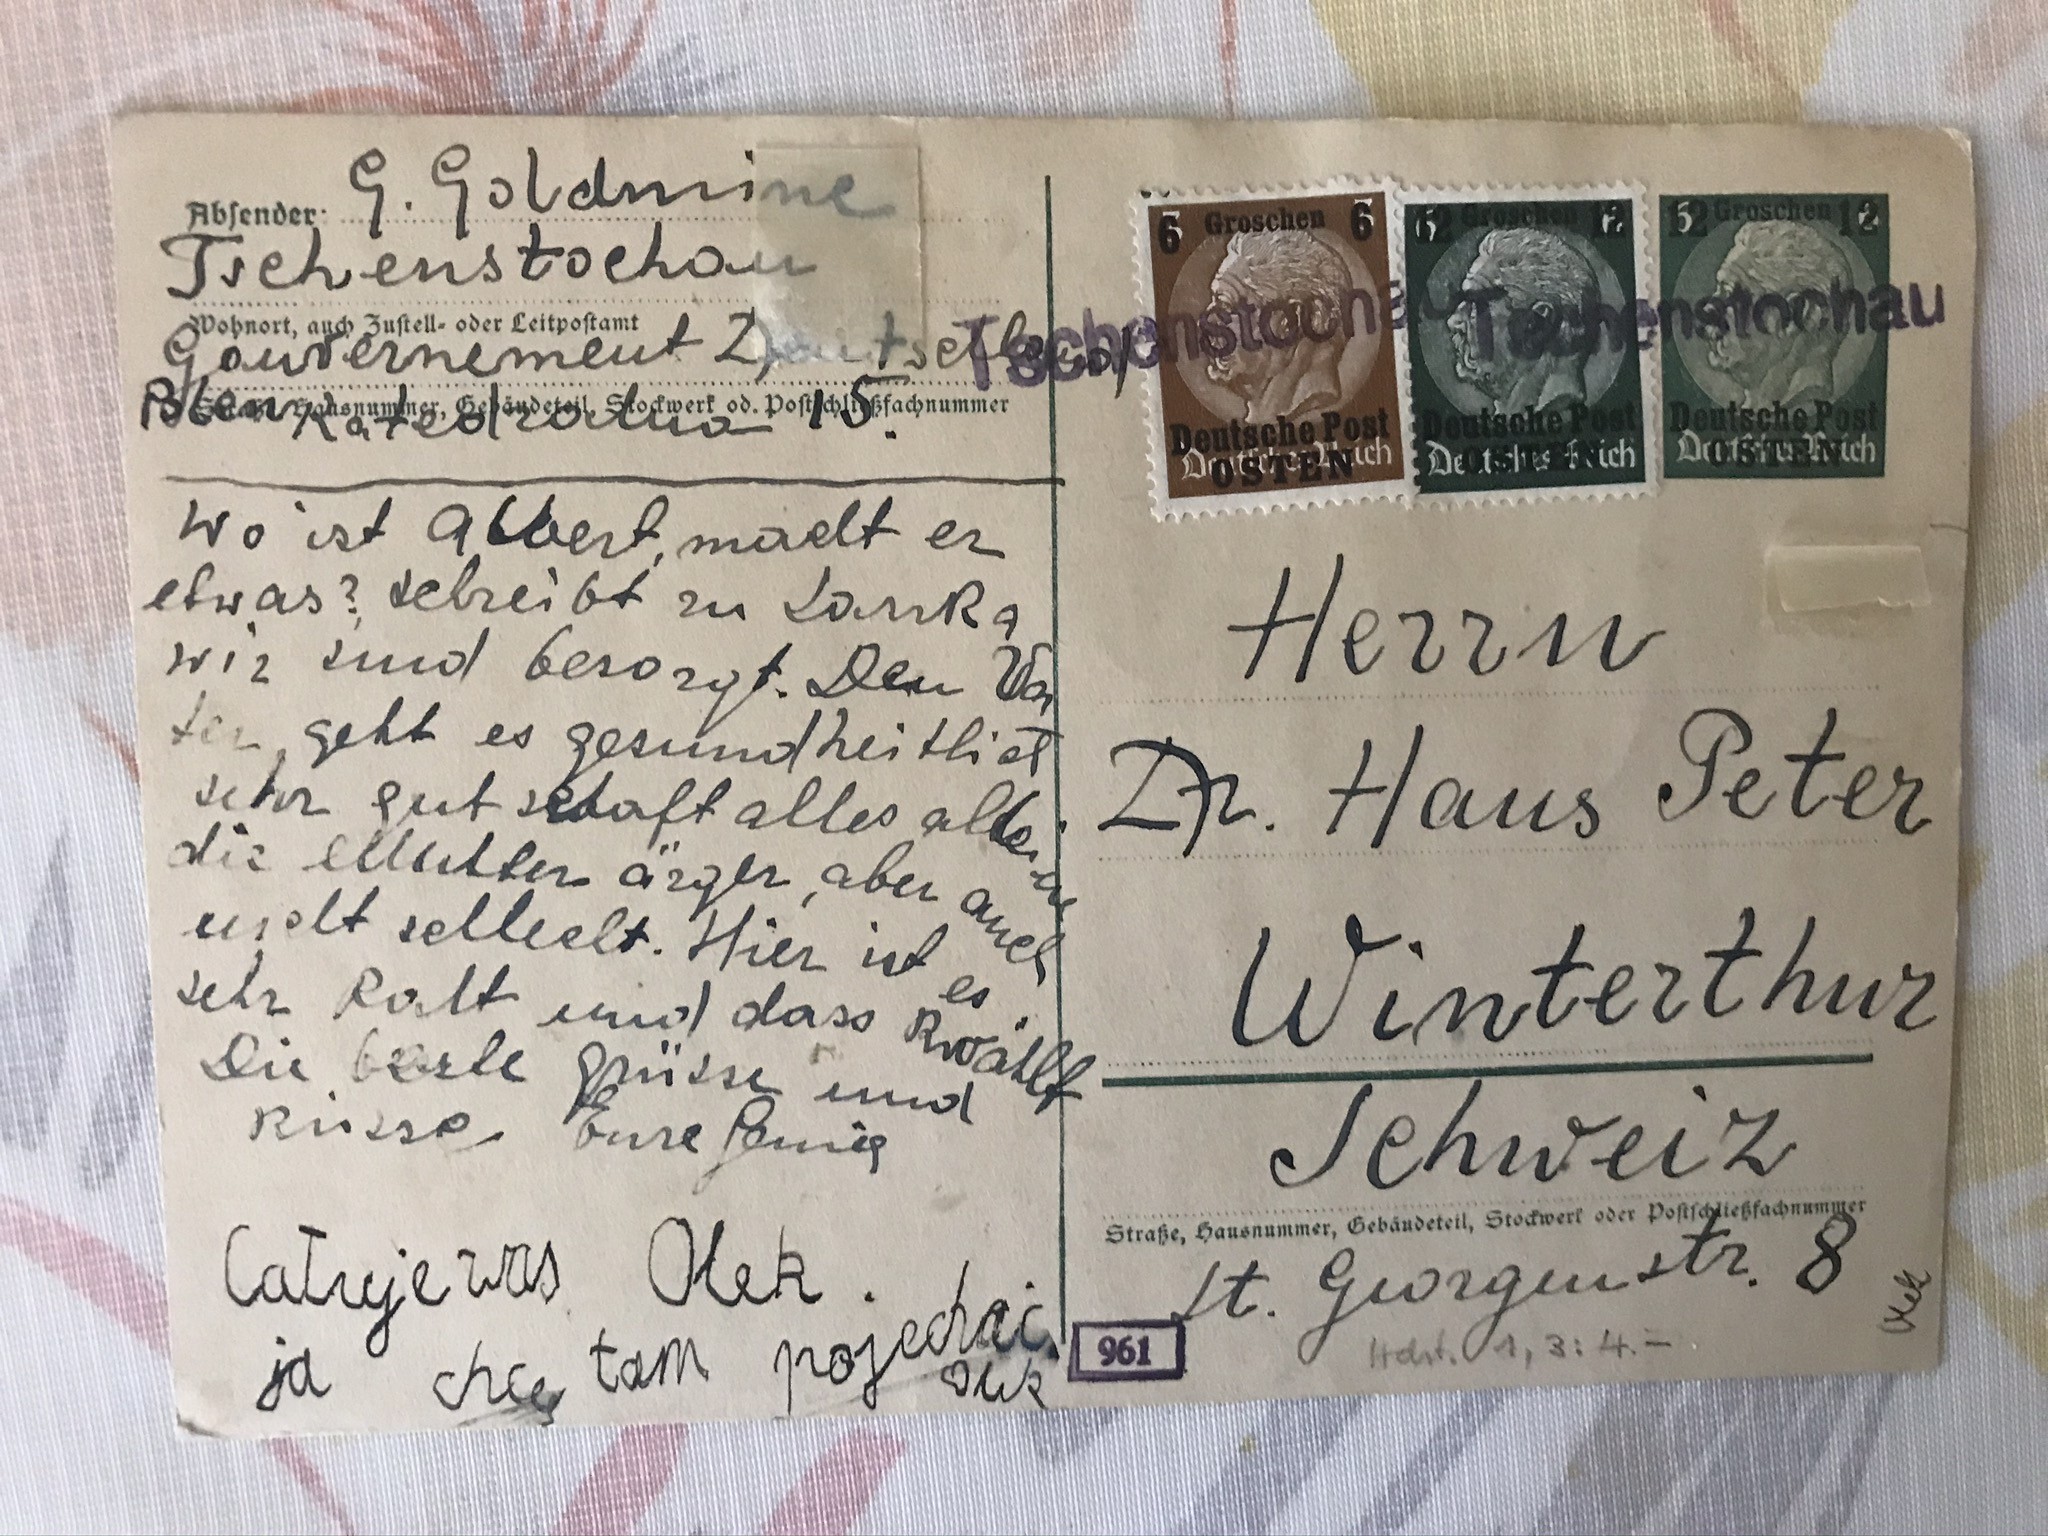 Absender: G. Goldmine
Tschenstochau
Wohnort, auch Zustell- oder Leitpostamt
Gouvernement Deutschland
Straße, Hausnummer, Gebäudeteil, Stockwerk od. Postschließfachnummer
Polen Katedralna 15.
Wo ist Albert, macht er
etwas? schreibt zu
wir sind besorgt. Den Va
ter, geht es gesundheitlich
sehr gut schaft alles allein
die Mutter ärger, aber auch
nicht schlecht. Hier ist es
sehr kalt und dass
Die beste grüsse und
küsse Eure
Całuje was Olek.
ja chcę tam pojechać.
Olek
6 Groschen 6
Deutsche Post
OSTEN
Deutsches Reich
12 Groschen 12
Deutsche Post
OSTEN
Deutsches Reich
12 Groschen 12
Deutsche Post
OSTEN
Deutsches Reich
Tschenstochau Tschenstochau
Herrn
Dr. Hans Peter
Winterthur
Schweiz
Straße, Hausnummer, Gebäudeteil, Stockwerk oder Postschließfachnummer
St. Georgenstr. 8
961
1, 3: 4.-